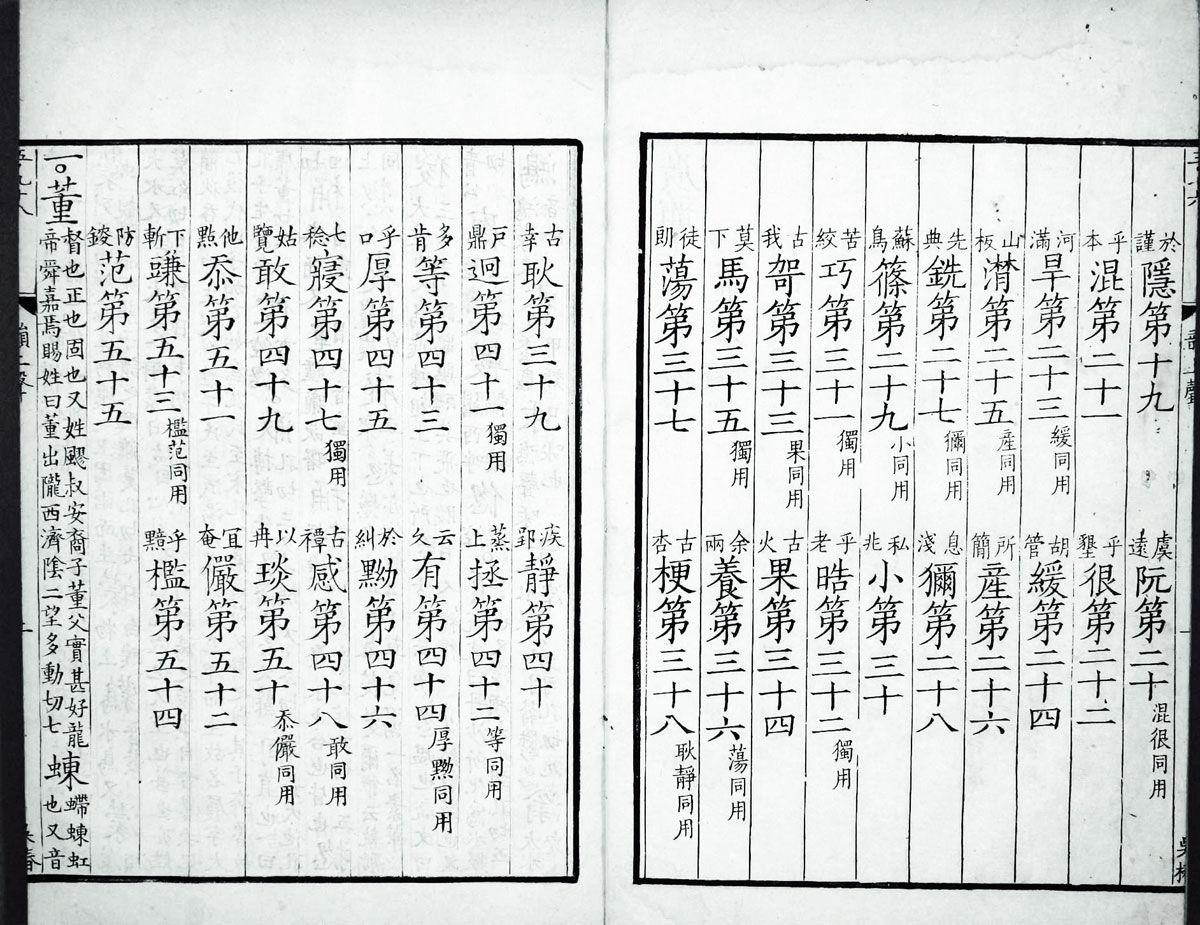 於謹隱第十九 虞遠阮第二十混很同用
乎本混第二十一 乎墾很第二十二
河滿旱第二十三緩同用 胡管緩第二十四
山板潸第二十五產同用 所簡產第二十六
先典銑第二十七獮同用 息淺獮第二十八
蘇鳥篠第二十九小同用 私兆小第三十
苦絞巧第三十一獨用 乎老晧第三十二獨用
古我哿第三十三果同用 古火果第三十四
莫下馬第三十五獨用 余兩養第三十六蕩同用
徒朗蕩第三十七 古杏梗第三十八耿靜同用
古幸耿第三十九 疾郢靜第四十
戶鼎迥第四十一獨用 蒸上拯第四十二等同用
多肯等第四十三 云久有第四十四厚黝同用
乎口厚第四十五 於糾黝第四十六
七稔寑第四十七獨用 古禫感第四十八敢同用
姑覽敢第四十九 以冉琰第五十忝儼同用
他點忝第五十一 宜奄儼第五十二
下斬豏第五十三檻范同用 乎黤檻第五十四
防錽范第五十五
一。董督也正也固也又姓颺叔安裔子董父實甚好龍帝舜嘉焉賜姓曰董出隴西濟陰二望多動切七 蝀螮蝀虹也又音